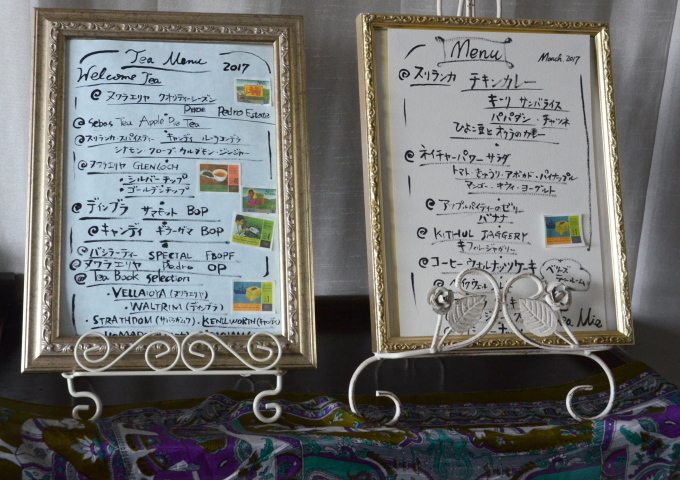 Tea Menu
2017
Welcome Tea
@ ヌワラエリヤ クオリティーシーズン
Pedro Estate
@ Sebas Tea Apple Pie Tea
@ スリランカ・スパイスティー キャンディ・ルフナコンデラ
シナモン・クローブ・カルダモン・ジンジャー
@ ヌワラエリヤ GLENLOCH
・シルバーチップ
・ゴールデンチップ
@ ディンブラ サマセット BOP
@ キャンディ ギラーガマ BOP
@ バシラーティー SPECIAL FBOPF
@ ヌワラエリヤ Pedro OP
@ Tea Book selection
・VELLAOYA (ヌワラエリヤ)
・WALTRIM (ディンブラ)
・STRATHDON (サバラガムワ)・KENILWORTH (キャンディ)
Menu
March, 2017
@ スリランカ チキンカレー
キーリ サンバライス
パパダン・チャツネ
ひよこ豆とオクラのカレー
@ ネイチャーパワーサラダ
トマト・きゅうり・アボカド・パイナップル
マンゴー・キウイ・ヨーグルト
@ アップルパイティーのゼリー
バナナ
@ KITHUL JAGGERY
キトゥルジャガリー
@ コーヒーウォルナッツケーキ
ベリーズ
ティールーム